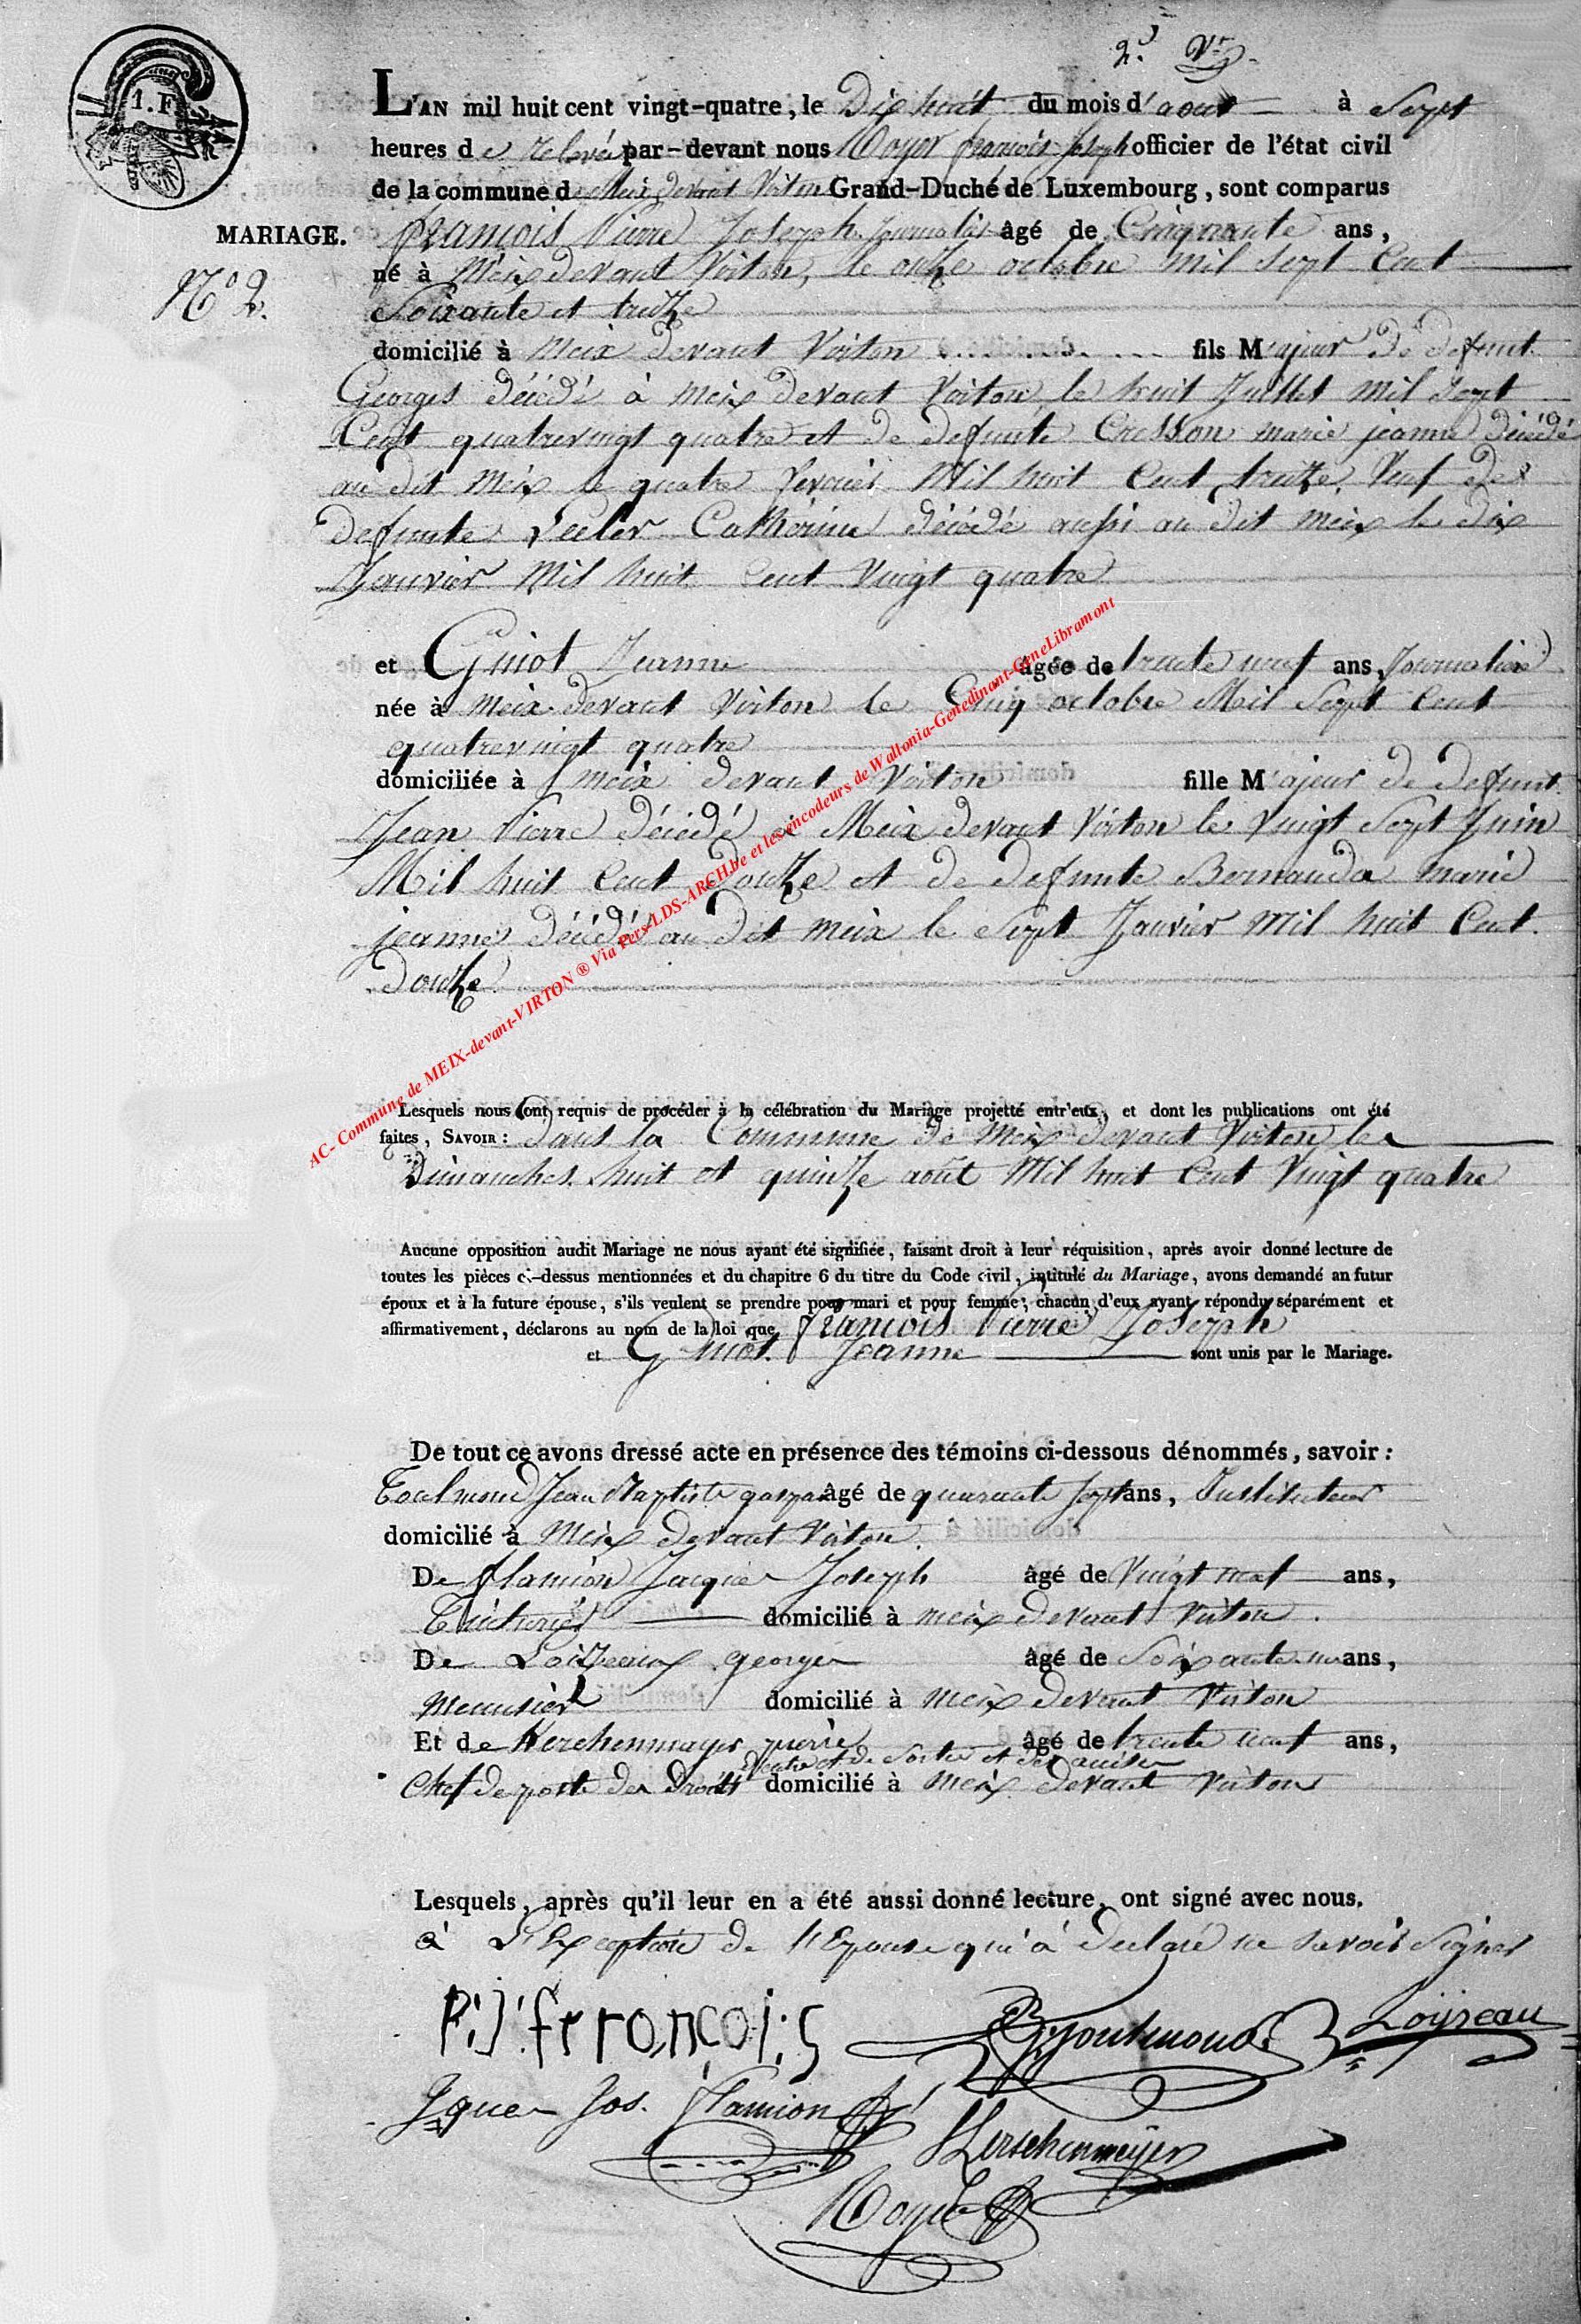 2.
1. F
L'AN mil huit cent vingt-quatre, le Dix huit du mois d'aout à Sept
heures de relevée par-devant nous françois Joseph officier de l'état civil
de la commune de Meix devant Virton Grand-Duché de Luxembourg, sont comparus
MARIAGE. françois Pierre Joseph Journalier âgé de Cinquante ans,
né à Meix devant Virton, le onze octobre mil Sept Cent
N° 2. Soixante et treize
domicilié à Meix devant Virton fils Majeur de defunt
Georges décédé à Meix devant Virton, le huit Juillet mil Sept
Cent quatrevingt quatre et de defunte Cresson marie jeanne décédé
au dit Meix le quatre fevrier Mil huit Cent treize. Veuf de
defunte Lecler Cathérine décédé aussi au dit meix le dix
Janvier Mil huit Cent Vingt quatre
et Guiot Jeanne âgée de trente neuf ans, Journalière
née à Meix devant Virton le Cinq octobre Mil Sept Cent
quatrevingt quatre
domiciliée à meix devant Virton fille Majeur de defunt
Jean Pierre décédé à Meix devant Virton le Vingt Sept Juin
Mil huit Cent Douze et de defunte marie
jeanne décédé au dit Meix le Sept Janvier Mil huit Cent
douze
AC- Commune de MEIX-devant-VIRTON ® Via Pers-LDS-ARCH.be et les encodeurs de Wallonia-Genedinant-GeneLibramont
Lesquels nous ont requis de procéder à la célébration du Mariage projetté entr'eux, et dont les publications ont été
faites, SAVOIR : dans la Commune de Meix devant Virton les
Dimanches huit et quinze août Mil huit Cent Vingt quatre
Aucune opposition audit Mariage ne nous ayant été signifiée, faisant droit à leur réquisition, après avoir donné lecture de
toutes les pièces ci-dessus mentionnées et du chapitre 6 du titre du Code civil, intitulé du Mariage, avons demandé au futur
époux et à la future épouse, s'ils veulent se prendre pour mari et pour femme; chacun d'eux ayant répondu séparément et
affirmativement, déclarons au nom de la loi que françois Pierre Joseph
et Guiot Jeanne sont unis par le Mariage.
De tout ce avons dressé acte en présence des témoins ci-dessous dénommés, savoir :
Toulmond Jean Baptiste gaspar âgé de quarante Sept ans, Instituteur
domicilié à Meix devant Virton.
De flamion Jacques Joseph âgé de Vingt neuf ans,
domicilié à meix devant Virton.
De Loizeaux georges âgé de Soixante ans,
Menusier domicilié à meix devant Virton
Et de Kerchenmayer pierre âgé de trente neuf ans,
d'entrée et de Sortie et des accises
Chef de poste des droits domicilié à Meix devant Virton
Lesquels, après qu'il leur en a été aussi donné lecture, ont signé avec nous.
à L'Exception de l'Epouse qui à declaré ne savoir Signer
P: J: ferançois
Toulmond Loÿseau
Jques Jos. flamion
Kerschenmeÿer